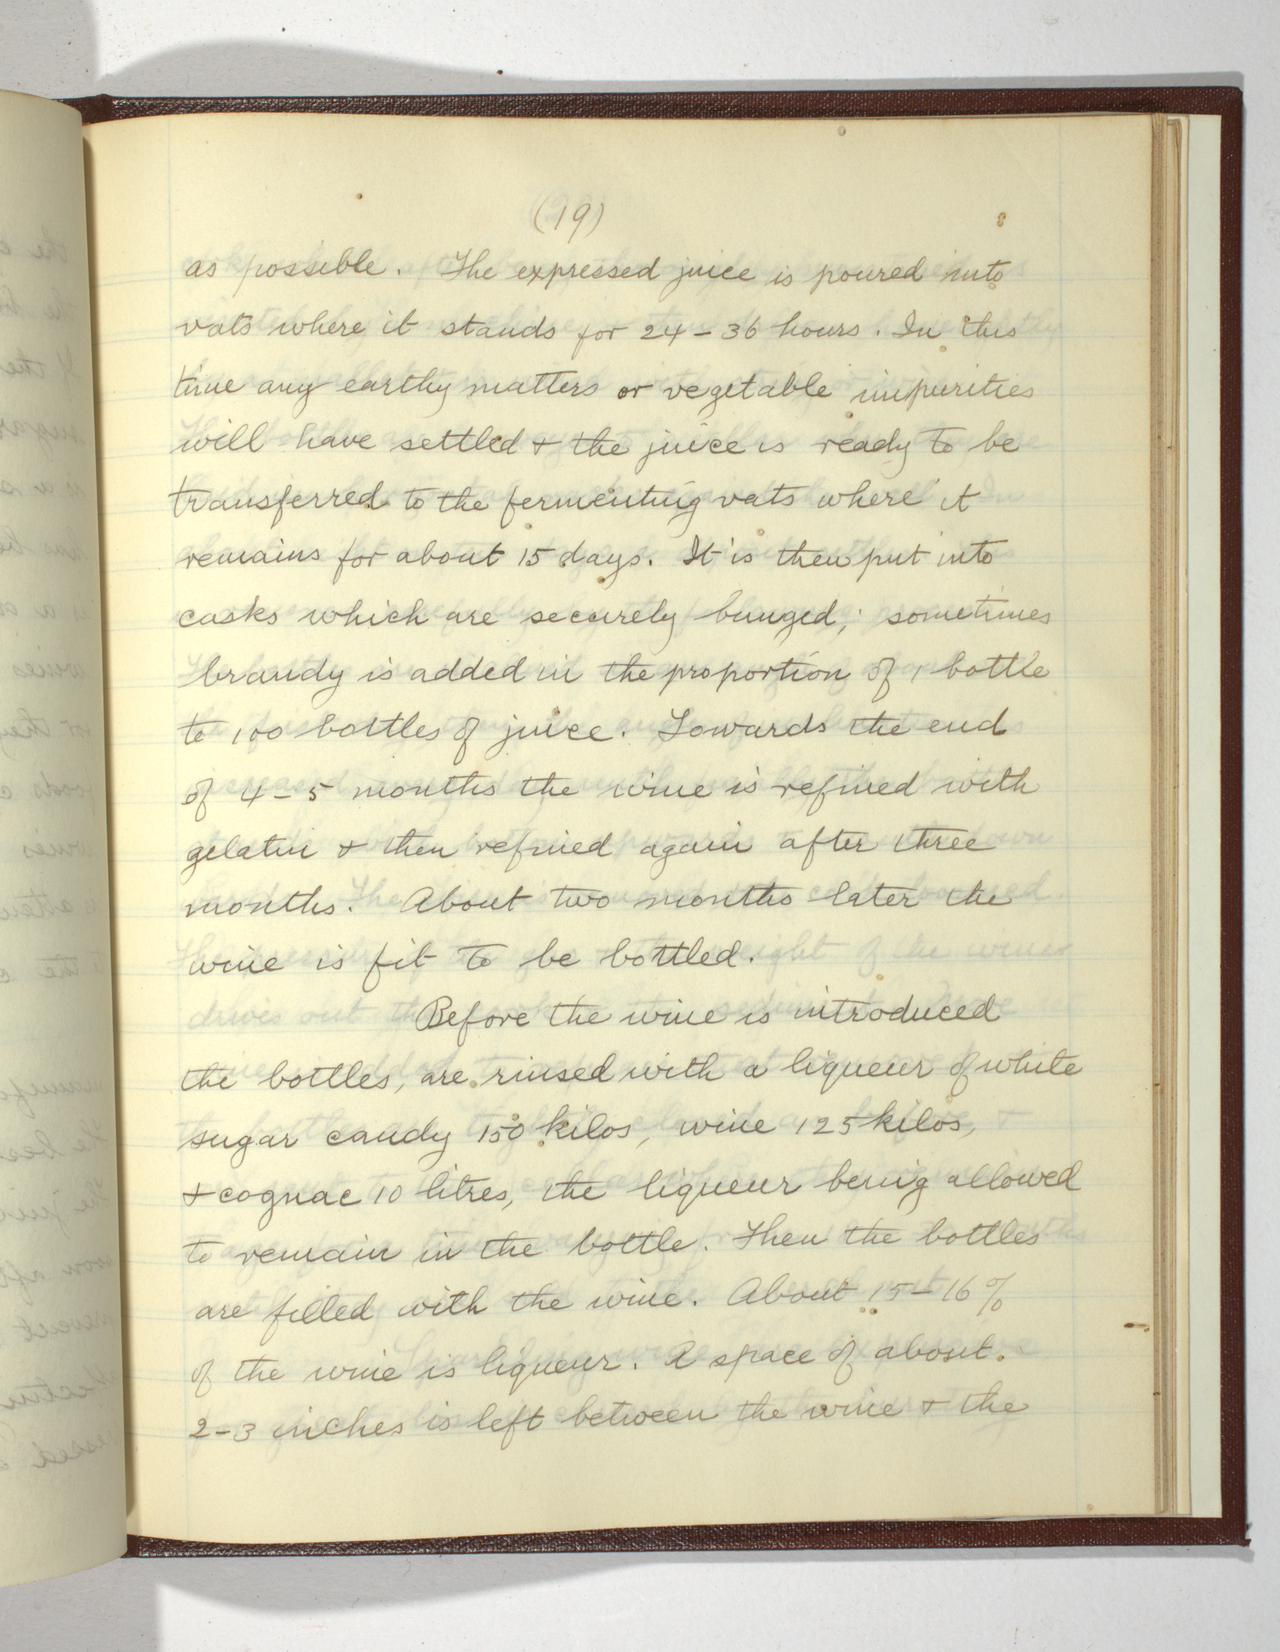 (19)
as possible. The expressed juice is poured into
vats where it stands for 24-36 hours. In this
time any earthy matters or vegetable impurities
will have settled & the juice is ready to be
transferred to the fermenting vats where it
remains for about 15 days. It is then put into
casks which are securely bunged; sometimes
brandy is added in the proportion of 1 bottle
to 100 bottles of juice. Towards the end
of 4-5 months the wine is refined with
gelatin & then refined again after three
months. About two months later the
wine is fit to be bottled.
Before the wine is introduced
the bottles, are rinsed with a liqueur of white
sugar candy 150 kilos, wine 125 kilos,
& cognac 10 litres, the liqueur being allowed
to remain in the bottle. Then the bottles
are filled with the wine. About 15-16%
of the wine is liqueur. A space of about
2-3 inches is left between the wine & the